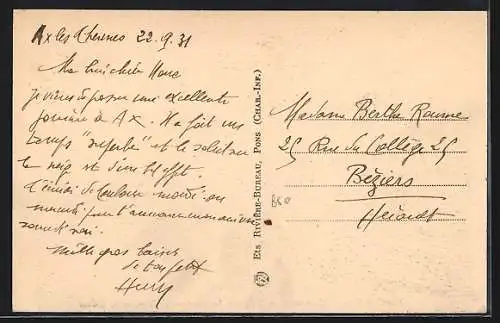 Ax les Thermes 22.9.31
Ma bien chère Mone
je viens de passer une excellente
journée à Ax. Il a fait un
temps "superbe" et le soleil sur
la neige est d'un bel effet.
mardi ou
samedi soir.
Mille gros baisers
de ton petit
Ets RIVIÈRE-BUREAU, PONS (CHAR.-INF.)
Madame Berthe Roume
25 Rue du Collège 25
Béziers
Hérault